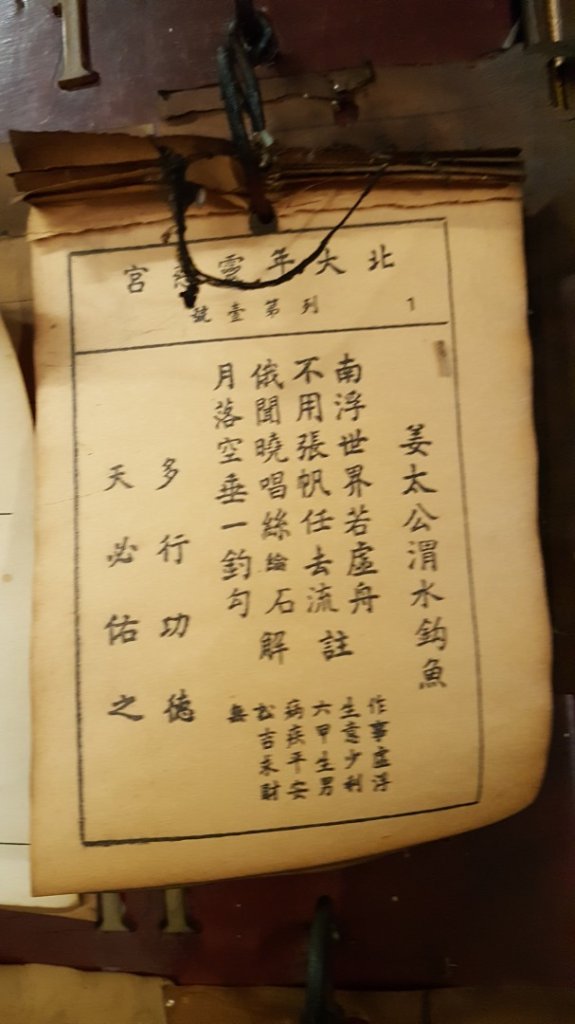 北大年靈慈宮
1 列第壹號
姜太公渭水鈎魚
南浮世界若虛舟
不用張帆任去流
俄聞曉唱絲綸石
月落空垂一釣勾
註解
作事虛浮
生意少利
六甲生男
病疾平安
訟吉求財
無
多行功德
天必佑之